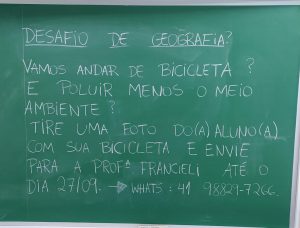 DESAFIO DE GEOGRAFIA?
VAMOS ANDAR DE BICICLETA ?
E POLUIR MENOS O MEIO
AMBIENTE ?
TIRE UMA FOTO DO(A) ALUNO(A)
COM SUA BICICLETA E ENVIE
PARA A PROFª FRANCIELI ATÉ O
DIA 27/09. → WHATS: 41 98829-7266.